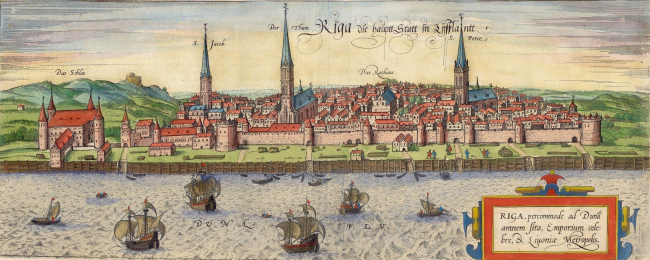 RIGA die haupt Statt in Lyfflandtt
S. Jacob
Der Thum
S. Peter
Das Schlos
Das Rathaus
DVNA FLV.
RIGA, percommode ad Dunã
amnem sita, Emporium cele
bre, & Livoniæ Metropolis.